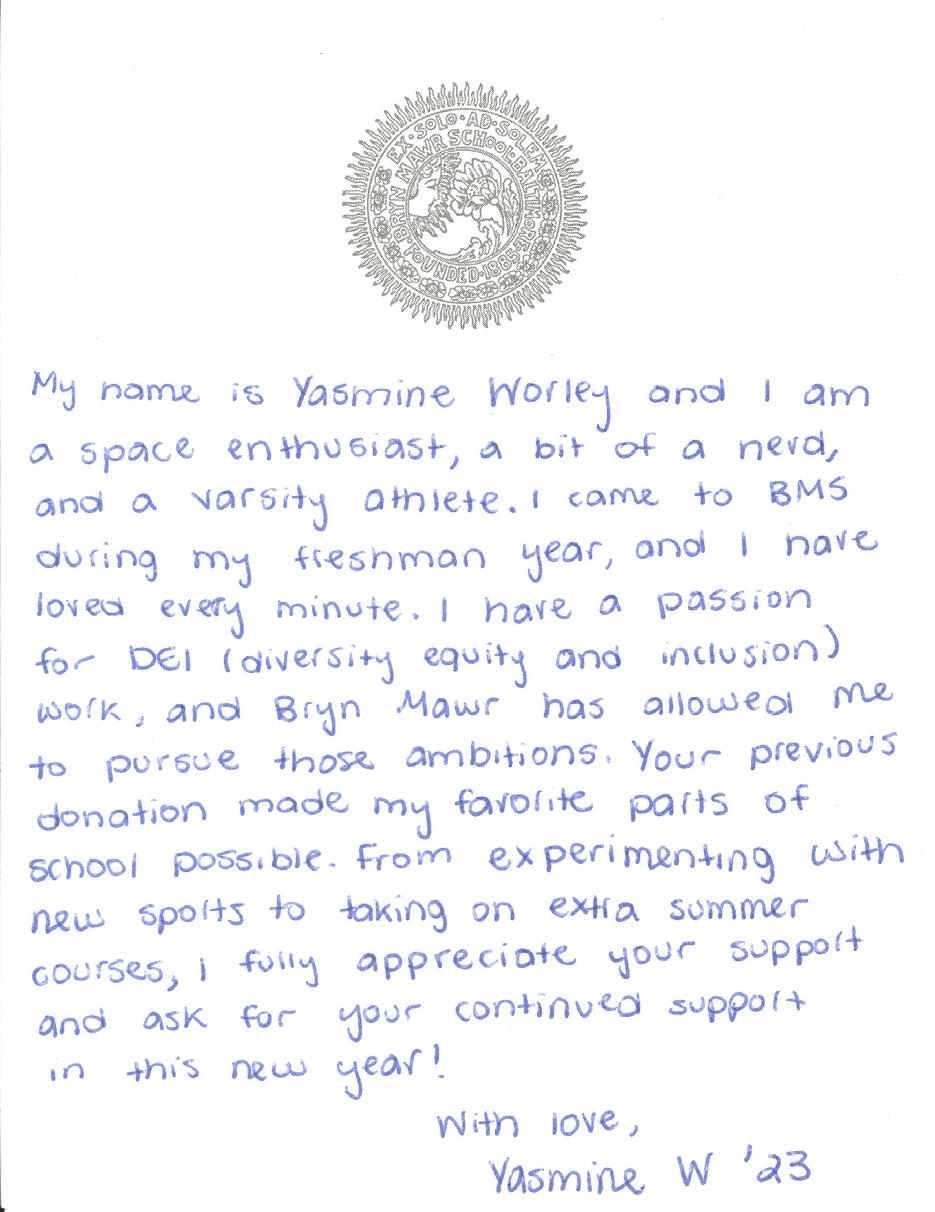 EX·SOLO·AD·SOLEM
BRYN MAWR SCHOOL·BALTIMORE·
·FOUNDED·1885·
My name is Yasmine Worley and I am
a space enthusiast, a bit of a nerd,
and a varsity athlete. I came to BMS
during my freshman year, and I have
loved every minute. I have a passion
for DEI (diversity equity and inclusion)
work, and Bryn Mawr has allowed me
to pursue those ambitions. Your previous
donation made my favorite parts of
school possible. From experimenting with
new sports to taking on extra summer
courses, I fully appreciate your support
and ask for your continued support
in this new year!
With love,
Yasmine W '23